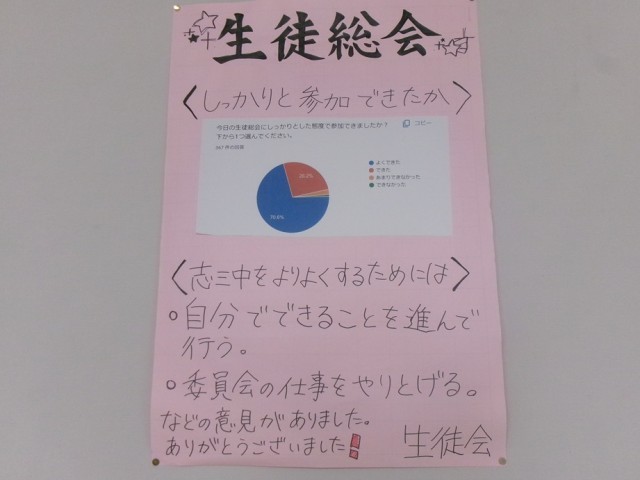 生徒総会
〈しっかりと参加できたか〉
今日の生徒総会にしっかりとした態度で参加できましたか？
下から1つ選んでください。
コピー
よくできた
できた
あまりできなかった
できなかった
〈志三中をよりよくするためには〉
○自分でできることを進んで
行う。
○委員会の仕事をやりとげる。
などの意見がありました。
ありがとうございました！
生徒会